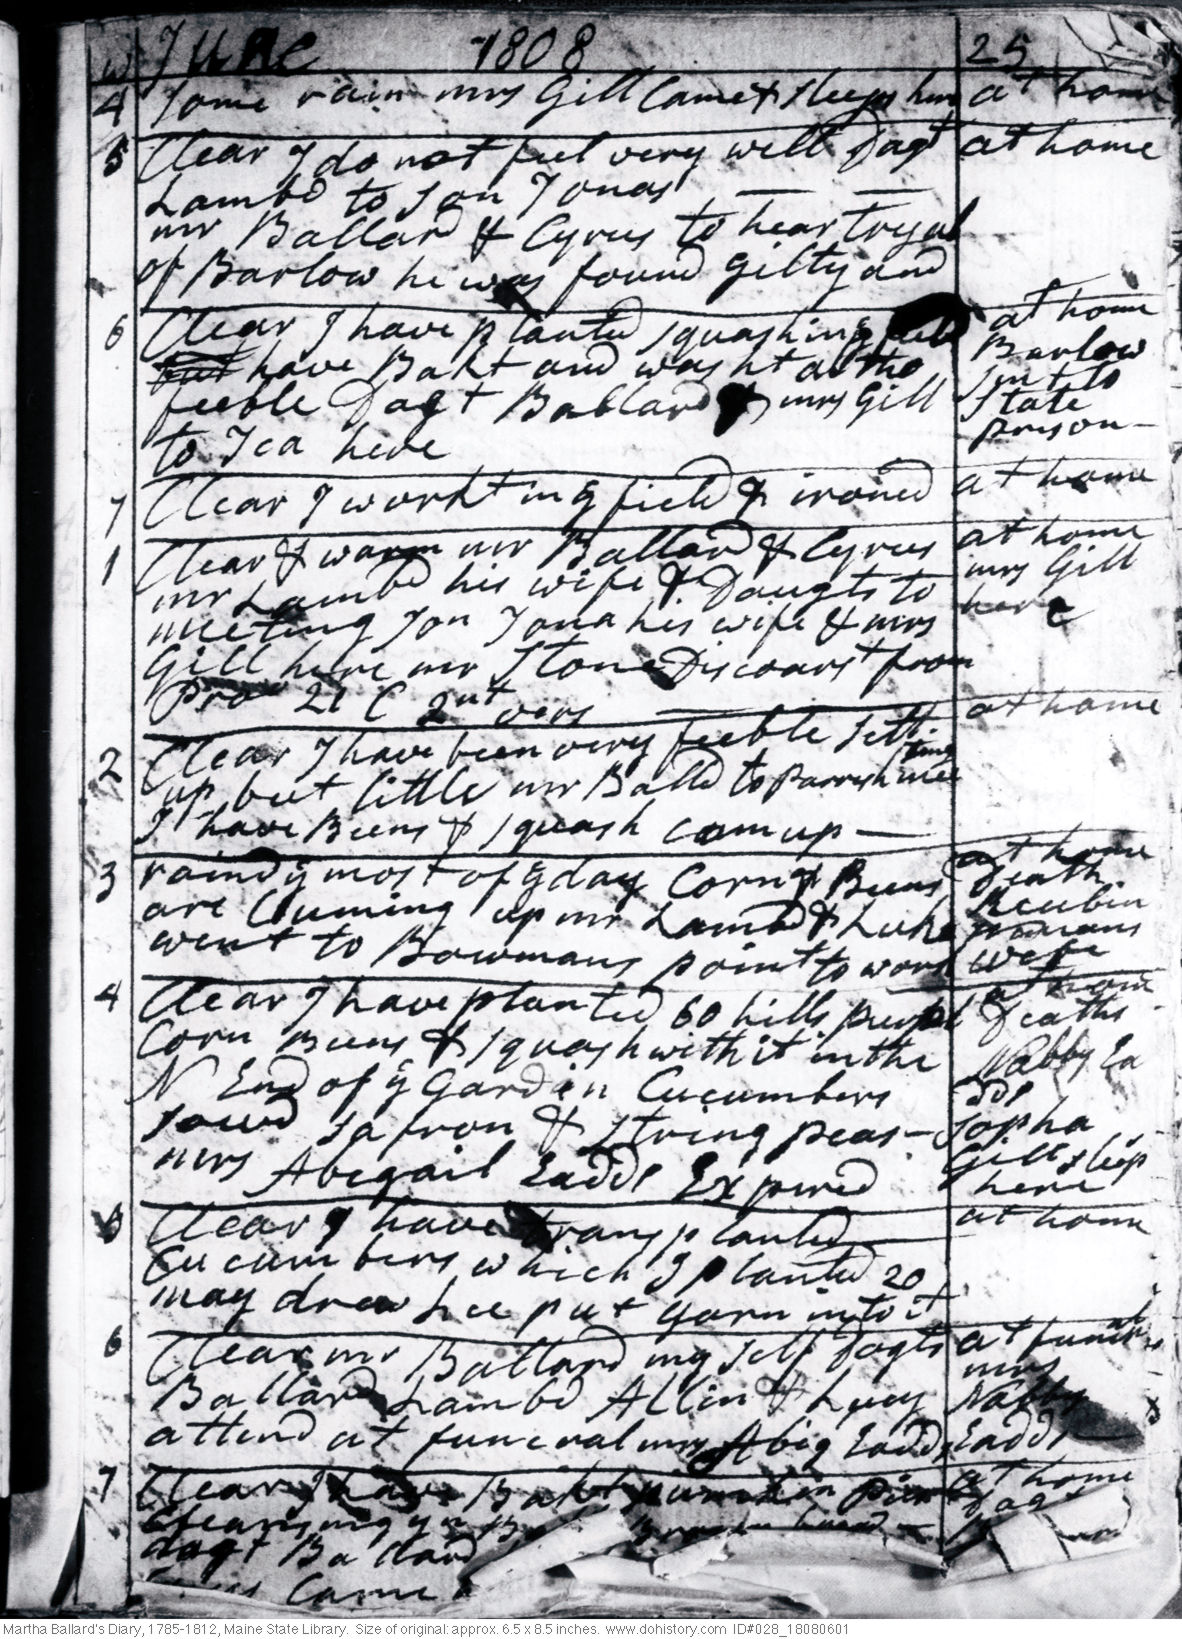 w June 1808 25
4 Some rain mrs Gill Came & sleeps here at home
5 Clear I do not feel very well Dagt at home
Lambd to son Jonas
mr Ballard & Cyrus to hear tryal
of Barlow he was found gilty and
6 Clear I have planted squash in ye at home
but have Bakt and washt as tho Barlow
feeble Dagt Ballard & mrs Gill sent to
to Tea here State
prison
7 Clear I workt in ye field & ironed at home
1 Clear & warm mr Ballard & Cyrus at home
mr Lambd his wife & Daugts to mrs Gill
meeting son Jona his wife & mrs here
Gill here mr Stone Discoarst from
Pro 21 C 2nt vers
2 Clear I have been very feeble setting at home
up but little mr Balld to Parrish mee
I have Beens & squash com up
3 raind ye most of ye day Corn & Beens at home
are Cuming up mr Lambd & Luke Death
went to Bowmans point to work Reubin
wife
4 Clear I have planted 60 hills at home
Corn Beens & squash with it in the Deaths
N End of ye Gardin Cucumbers Nabby Ea
sowd safron & string peas dds
mrs Abigail Eadds Expired Sopha
Gill sleep
here
5 Clear I have transplanted at home
Cucumbers which I planted 20
may drew Lee put yarn into it
6 Clear mr Ballard my self Dagts at funeral
Ballard Lambd Allin & Lucy mrs
attend at funeral mrs Abig Eadds Nabby
Eadds
7 Clear I have Bakt at home
dagt Ballard Dagt
Came
Martha Ballard's Diary, 1785-1812, Maine State Library. Size of original: approx. 6.5 x 8.5 inches. www.dohistory.com ID#028_18080601